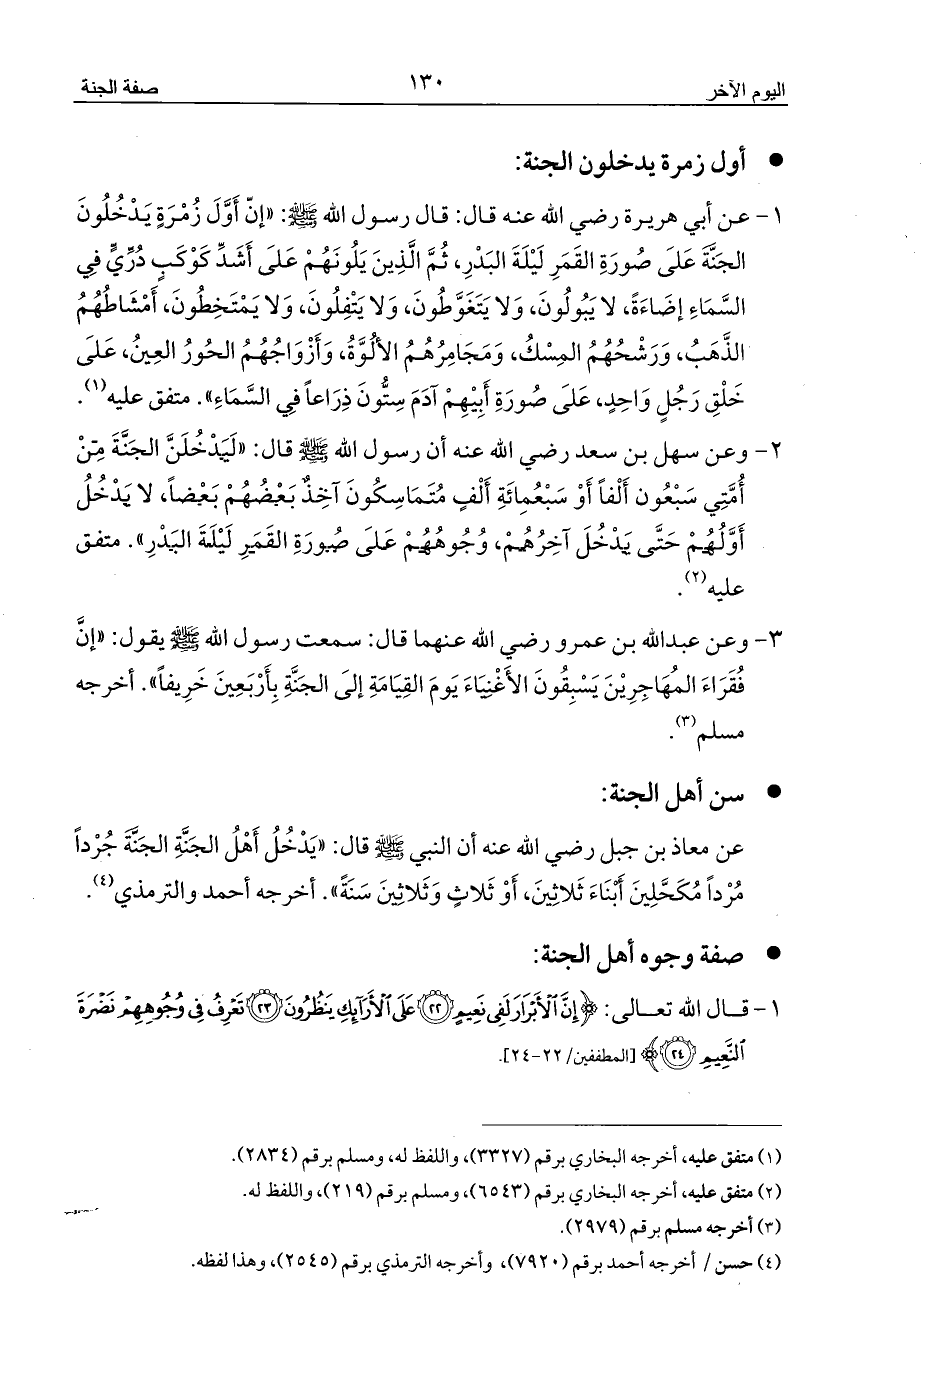 اليوم الآخر
١٣٠
صفة الجنة
● أول زمرة يدخلون الجنة:
١- عن أبي هريرة رضي الله عنه قال: قال رسول الله ﷺ: «إنّ أَوَّلَ زُمْرَةٍ يَدْخُلُونَ
الجنَّةَ عَلَى صُورَةِ القَمَرِ لَيْلَةَ البَدْرِ، ثُمَّ الَّذِينَ يَلُونَهُمْ عَلَى أَشَدِّ كَوْكَبٍ دُرِّيٍّ فِي
السَّمَاءِ إضَاءَةً، لا يَبُولُونَ، وَلا يَتَغَوَّطُونَ، وَلا يَتْفِلُونَ، وَلا يَمْتَخِطُونَ، أَمْشَاطُهُمُ
الذَّهَبُ، وَرَشْحُهُمُ المِسْكُ، وَمَجَامِرُهُمُ الأَلُوَّةُ، وَأَزْوَاجُهُمُ الحُورُ العِينُ، عَلَى
خَلْقِ رَجُلٍ وَاحِدٍ، عَلَى صُورَةِ أَبِيْهِمْ آدَمَ سِتُّونَ ذِرَاعاً فِي السَّمَاءِ». متفق عليه(١).
٢- وعن سهل بن سعد رضي الله عنه أن رسول الله ﷺ قال: «لَيَدْخُلَنَّ الجنَّةَ مِنْ
أُمَّتِي سَبْعُون أَلْفاً أَوْ سَبْعُمِائَةِ أَلْفٍ مُتَمَاسِكُونَ آخِذٌ بَعْضُهُمْ بَعْضاً، لا يَدْخُلُ
أَوَّلُهُمْ حَتَّى يَدْخُلَ آخِرُهُمْ، وُجُوهُهُمْ عَلَى صُورَةِ القَمَرِ لَيْلَةَ البَدْرِ». متفق
عليه(٢).
٣- وعن عبدالله بن عمرو رضي الله عنهما قال: سمعت رسول الله ﷺ يقول: «إنَّ
فُقَرَاءَ المهَاجِرِيْنَ يَسْبِقُونَ الأَغْنِيَاءَ يَومَ القِيَامَةِ إلَى الجنَّةِ بِأَرْبَعِينَ خَرِيفاً». أخرجه
مسلم(٣).
● سن أهل الجنة:
عن معاذ بن جبل رضي الله عنه أن النبي ﷺ قال: «يَدْخُلُ أَهْلُ الجنَّةِ الجنَّةَ جُرْداً
مُرْداً مُكَحَّلِينَ أَبْنَاءَ ثَلاثِينَ، أَوْ ثَلاثٍ وَثَلاثِينَ سَنَةً». أخرجه أحمد والترمذي(٤).
● صفة وجوه أهل الجنة:
١- قـال الله تعـالى: ﴿إِنَّ ٱلْأَبْرَارَ لَفِى نَعِيمٍ ٢٢ عَلَى ٱلْأَرَآئِكِ يَنظُرُونَ ٢٣ تَعْرِفُ فِى وُجُوهِهِمْ نَضْرَةَ
ٱلنَّعِيمِ ٢٤﴾ [المطففين/ ٢٢-٢٤].
(١) متفق عليه، أخرجه البخاري برقم (٣٣٢٧)، واللفظ له، ومسلم برقم (٢٨٣٤).
(٢) متفق عليه، أخرجه البخاري برقم (٦٥٤٣)، ومسلم برقم (٢١٩)، واللفظ له.
(٣) أخرجه مسلم برقم (٢٩٧٩).
(٤) حسن / أخرجه أحمد برقم (٧٩٢٠)، وأخرجه الترمذي برقم (٢٥٤٥)، وهذا لفظه.